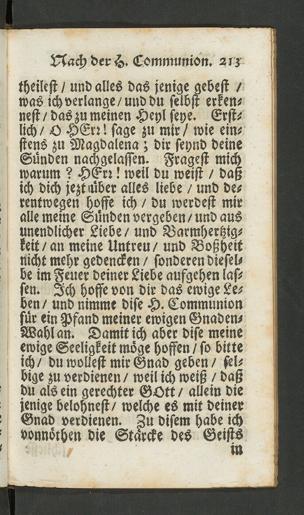 Nach der H. Communion. 213
theilest / und alles das jenige gebest /
was ich verlange / und du selbst erken-
nest / das zu meinen Heyl seye. Erst-
lich / O HErr! sage zu mir / wie ein-
stens zu Magdalena ; dir seynd deine
Sünden nachgelassen. Fragest mich
warum? HErr! weil du weist / daß
ich dich jezt über alles liebe / und de-
rentwegen hoffe ich / du werdest mir
alle meine Sünden vergeben / und aus
unendlicher Liebe / und Barmhertzig-
keit / an meine Untreu / und Boßheit
nicht mehr gedencken / sonderen diesel-
be im Feuer deiner Liebe aufgehen las-
sen. Ich hoffe von dir das ewige Le-
ben / und nimme dise H. Communion
für ein Pfand meiner ewigen Gnaden-
Wahl an. Damit ich aber dise meine
ewige Seeligkeit möge hoffen / so bitte
ich / du wollest mir Gnad geben / sel-
bige zu verdienen / weil ich weiß / daß
du als ein gerechter GOtt / allein die
jenige belohnest / welche es mit deiner
Gnad verdienen. Zu disem habe ich
vonnöthen die Stärcke des Geists
in